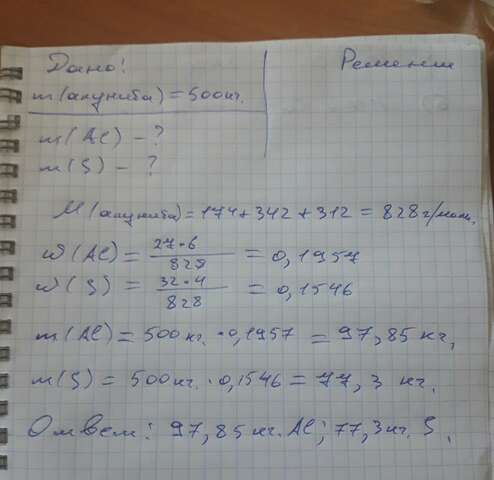 Дано: Решение
m(алунита) = 500 кг.
m(Al) - ?
m(S) - ?
M(алунита) = 174 + 342 + 312 = 828 г/моль.
ω(Al) = 27·6/828 = 0,1957
ω(S) = 32·4/828 = 0,1546
m(Al) = 500 кг. · 0,1957 = 97,85 кг.
m(S) = 500 кг. · 0,1546 = 77,3 кг.
Ответ: 97,85 кг. Al; 77,3 кг. S.